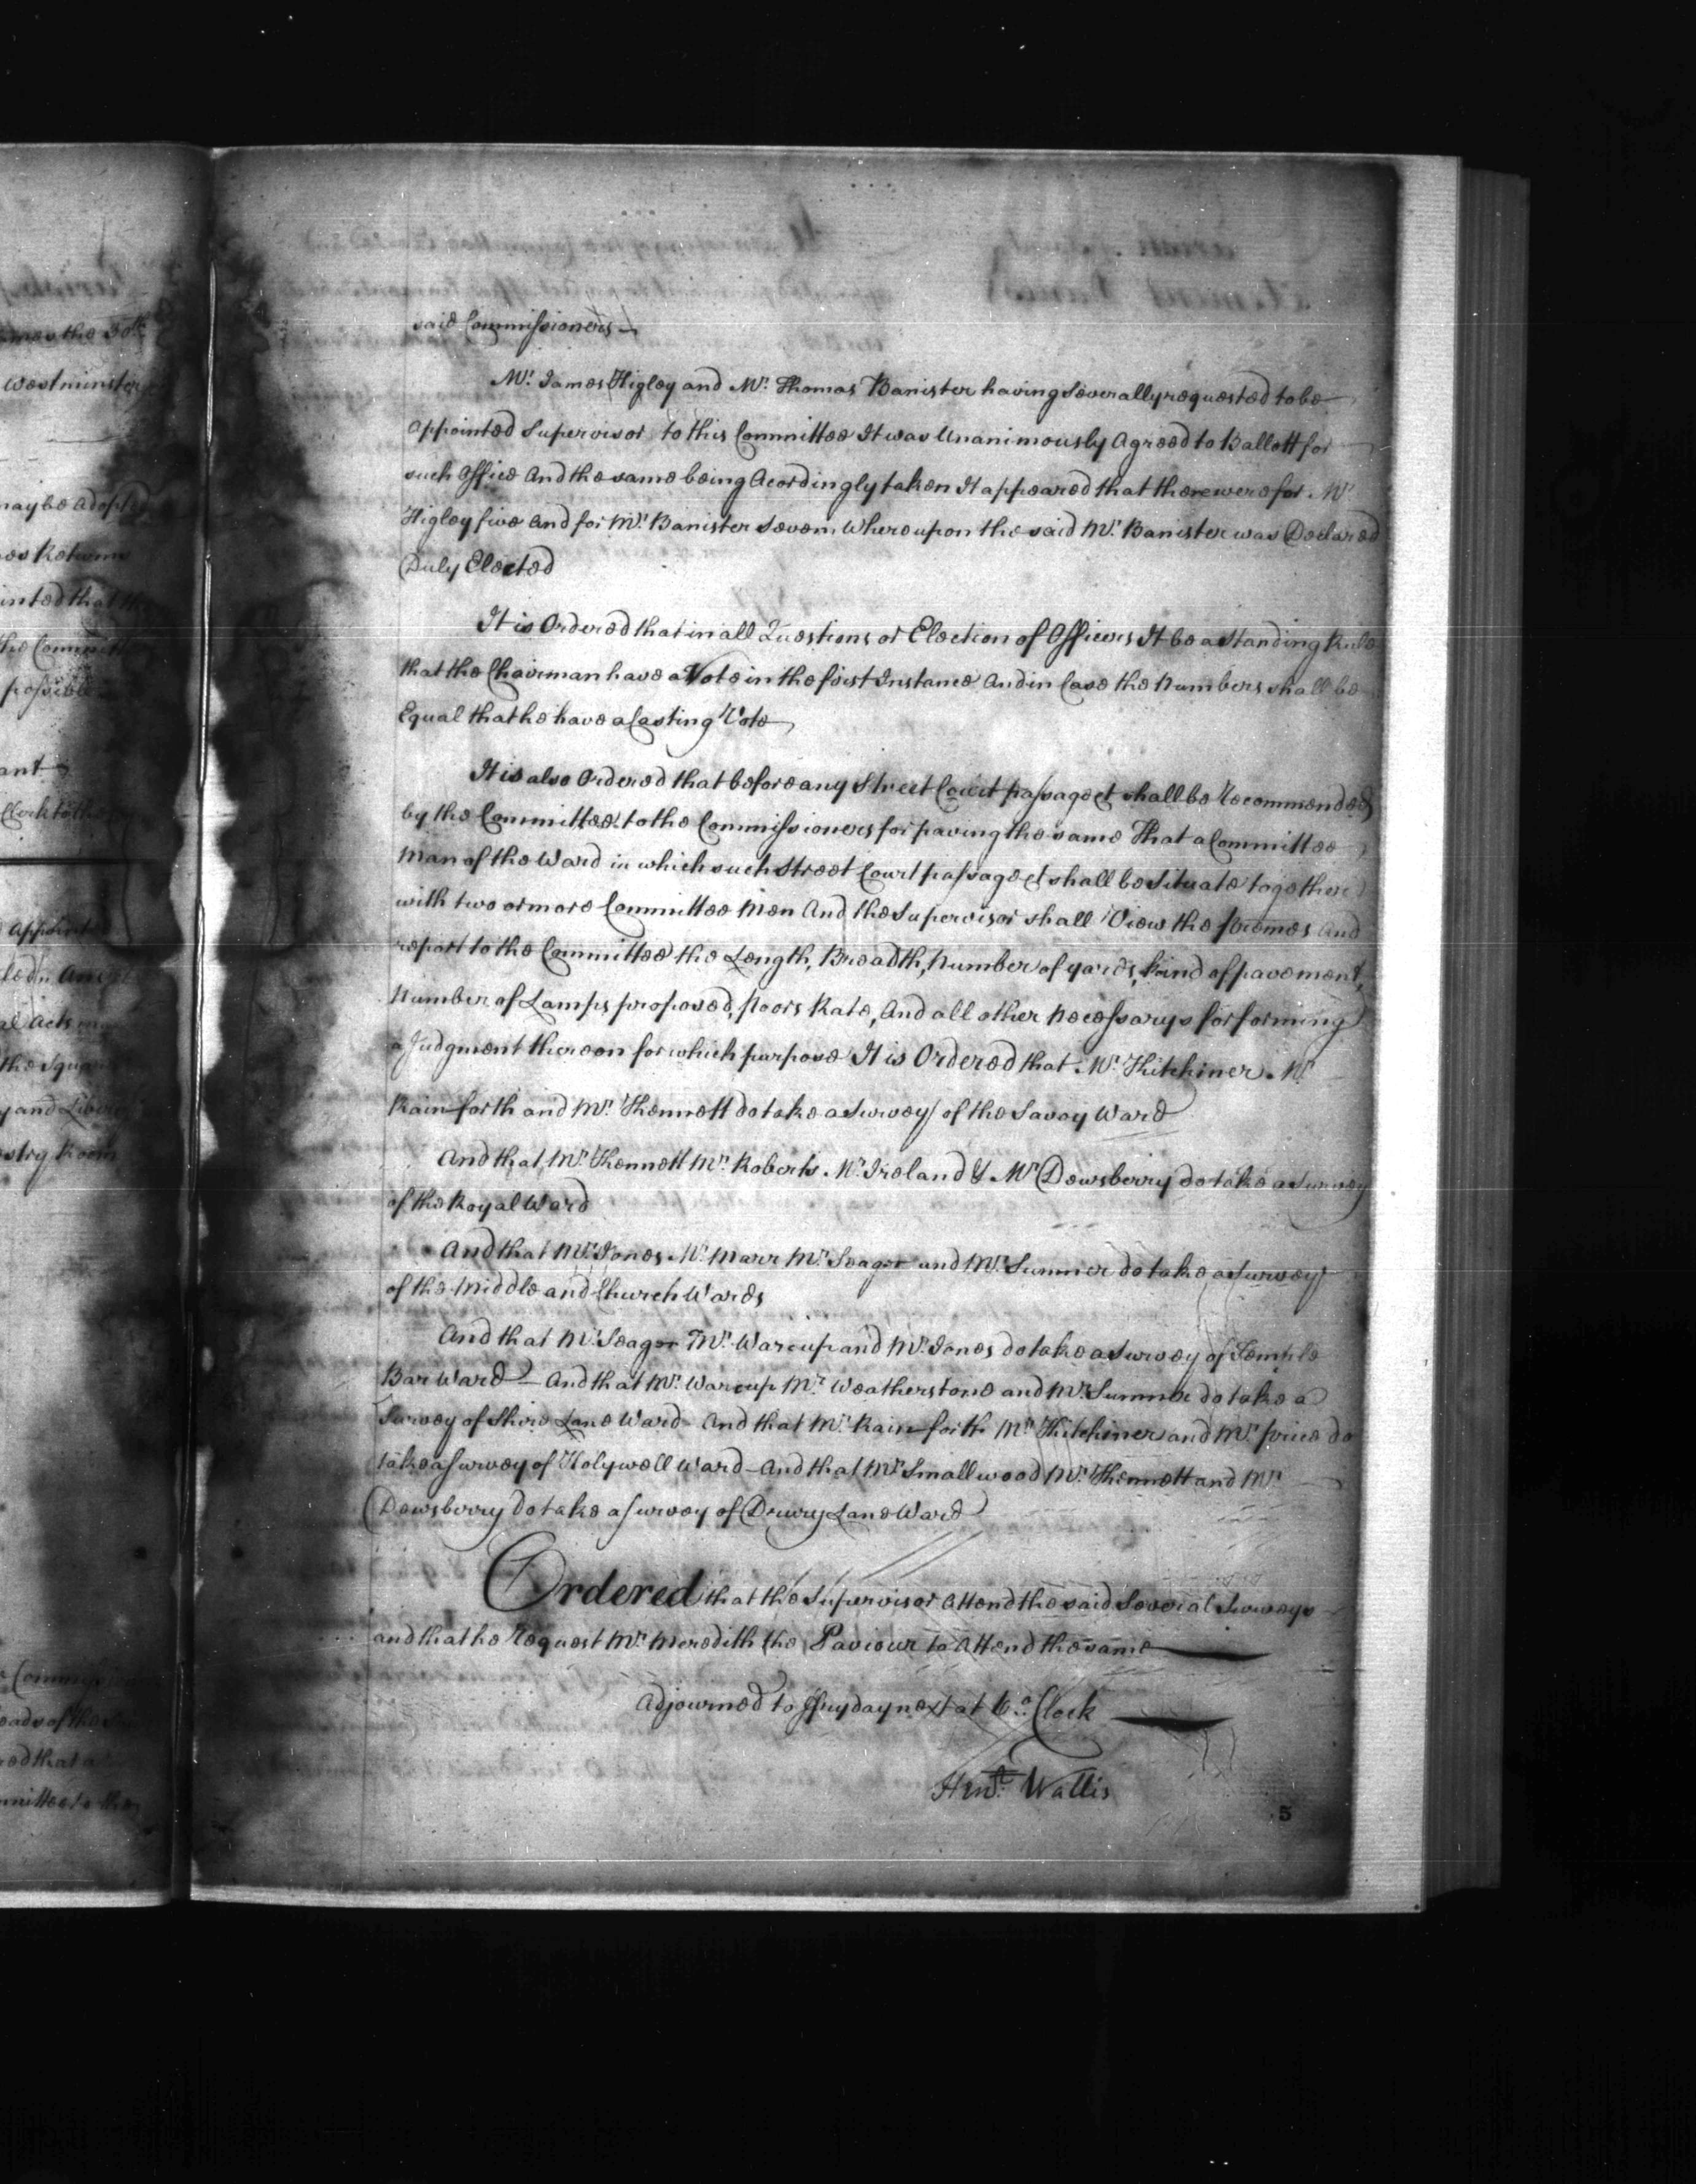 said Commissioners
Mr. James Higley and Mr. Thomas Banister having Severally requested to be
Appointed Supervisor to this Committee It was Unanimously Agreed to Ballott for
such Office And the same being Acordingly taken It appeared that there were for Mr
Higley five And for Mr. Banister Seven. Whereupon the said Mr. Banister was Declared
Duly Elected
It is Ordered that in all Questions or Election of Officers It be a Standing Rule
that the Chairman have a Vote in the first Instance And in Case the Numbers shall be
Equal that he have a Casting Vote
It is also Ordered that before any Street Court passage &c shall be Recommended
by the Committee to the Commissioners for paving the same That a Committee
Man of the Ward in which such Street Court passage &c shall be Situate together
with two or more Committee Men And the Supervisor shall View the premes And
report to the Committee the Length, Breadth, Number of yards, kind of pavement,
Number of Lamps proposed, poors Rate, And all other Necessarys for forming
a Judgment thereon for which purpose It is Ordered that Mr. Kitchiner Mr.
Rainforth and Mr. Kennett do take a Survey of the Savoy Ward
And that Mr. Kennett Mr. Roberts Mr. Ireland & Mr Dewsberry do take a Survey
of the Royal Ward
And that Mr. Jones Mr. Marr Mr. Seager and Mr. Sumner do take a Survey
of the Middle and Church Wards
And that Mr. Seager Mr. Warcup and Mr. Jones do take a Survey of Temple
Bar Ward - And that Mr. Warcup Mr. Weatherstone and Mr. Sumner do take a
Survey of Shire Lane Ward And that Mr. Rainforth Mr. Kitchiner and Mr. price do
take a Survey of Holywell Ward - And that Mr. Smallwood Mr. Kennett and Mr.
Dewsberry do take a Survey of Drury Lane Ward
Ordered that the Supervisor Attend the said Several Surveys
and that he Request Mr. Meredith the Paviour to Attend the same
Adjourned to Fryday next at 6 o. Clock
Wallis
5